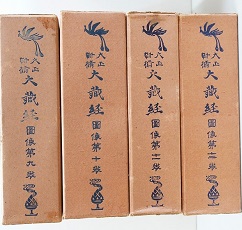 大正
新脩
大藏経
圖像第九卷
大正
新脩
大藏経
圖像第十卷
大正
新脩
大藏経
圖像第十一卷
大正
新脩
大藏経
圖像第十二卷